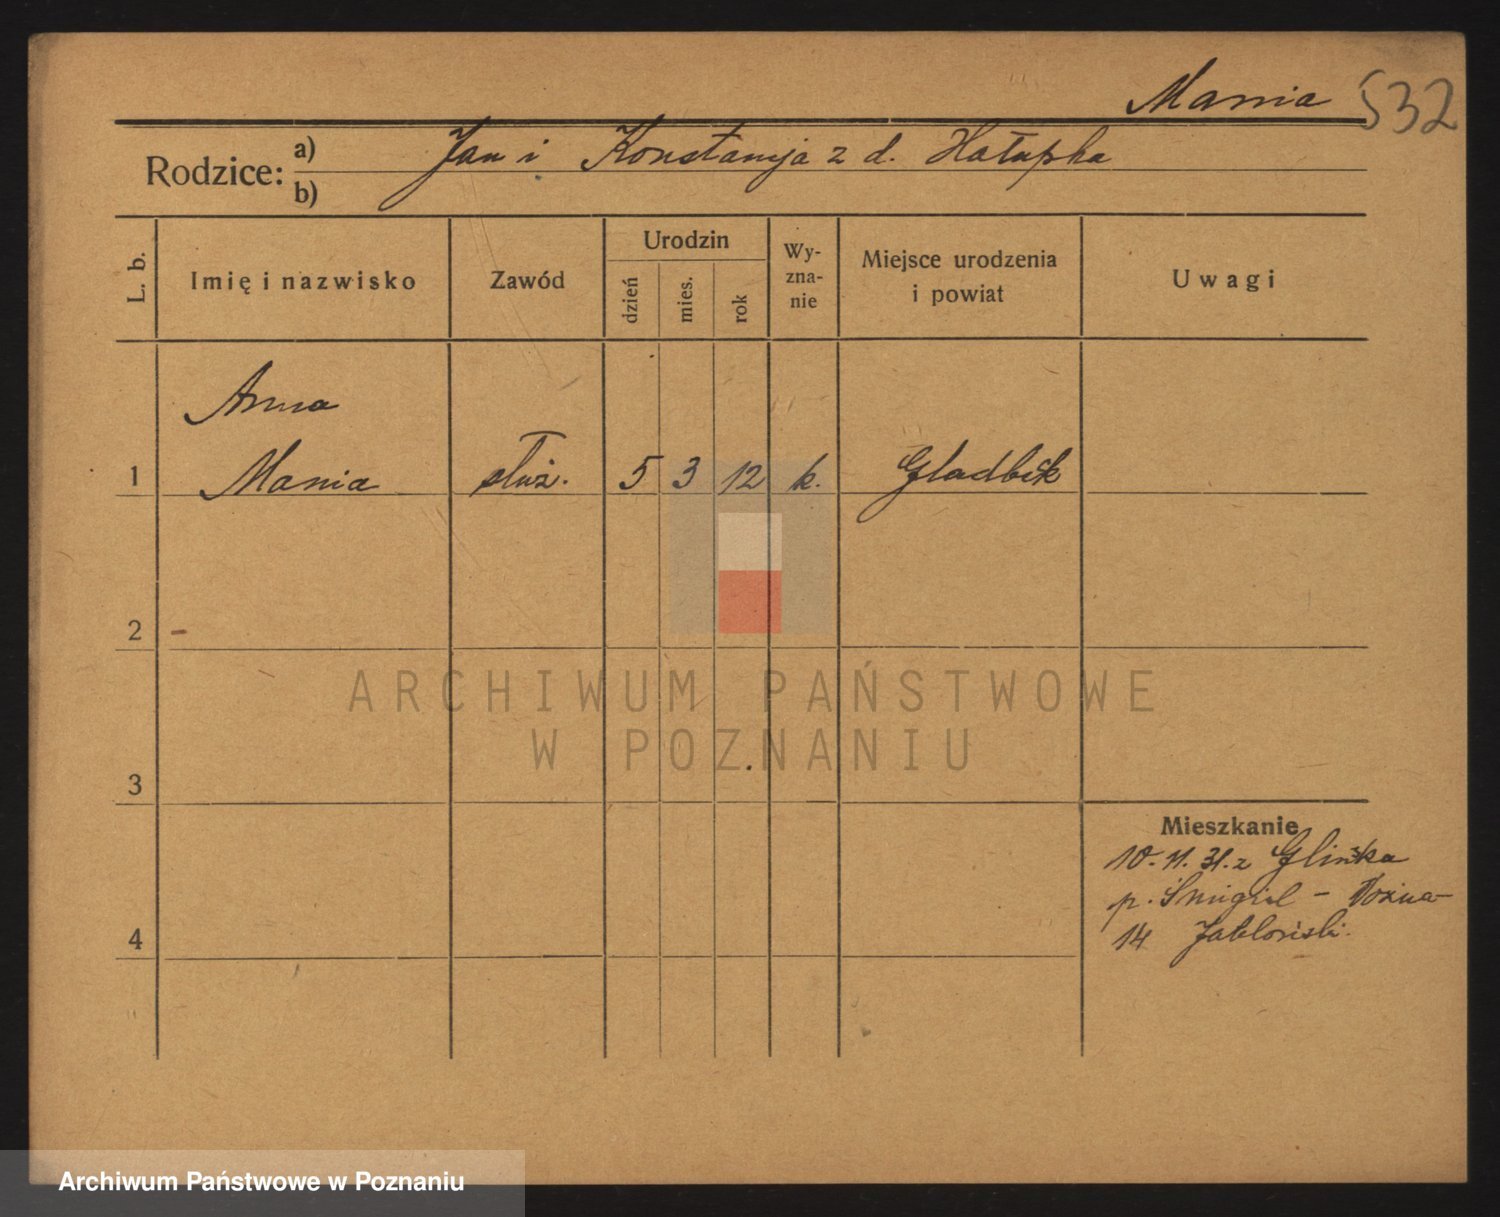 Mania 532
Rodzice: a) Jan i Konstancja z d. Hałupka
b)
L. b.
Imię i nazwisko
Zawód
Urodzin
dzień
mies.
rok
Wy-
zna-
nie
Miejsce urodzenia
i powiat
Uwagi
Anna
1 Mania służ. 5 3 12 k. Gladbek
2
ARCHIWUM PAŃSTWOWE
W POZNANIU
3
Mieszkanie
10.11.31. z Glińska
p. Śmigiel - Woźna
4
14 Jabłoński.
Archiwum Państwowe w Poznaniu